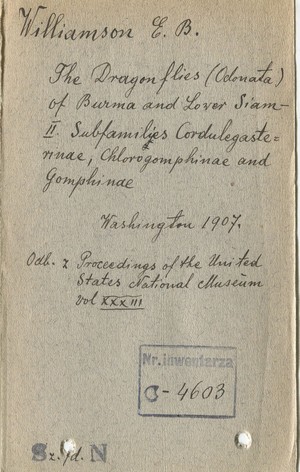 Williamson E. B.
The Dragonflies (Odonata)
of Burma and Lover Siam-
II. Subfamilies Cordulegaste=
rinae, Chlorogomphinae and
Gomphinae
Washington 1907.
Odb. z Proceedings of the United
States National Museum
vol XXXIII
Nr. inwentarza
C-4603
S z./d. N